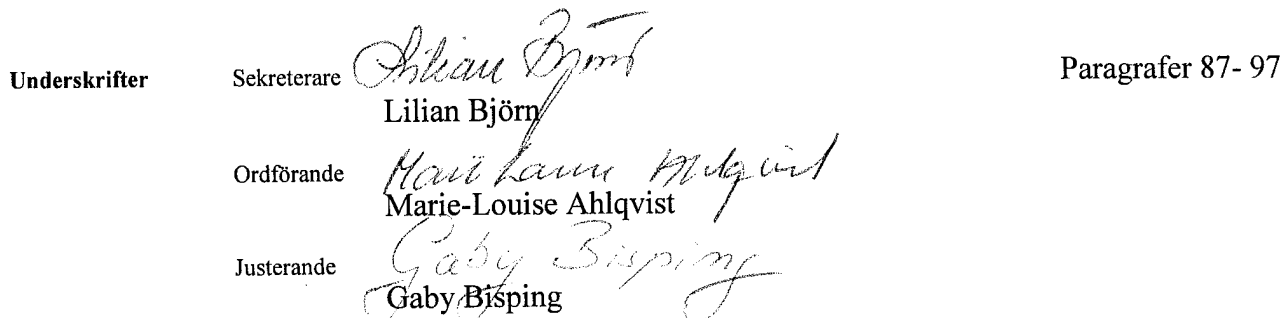 Underskrifter Sekreterare Lilian Björn Paragrafer 87- 97
Lilian Björn
Ordförande Marie Louise Ahlqvist
Marie-Louise Ahlqvist
Justerande Gaby Bisping
Gaby Bisping